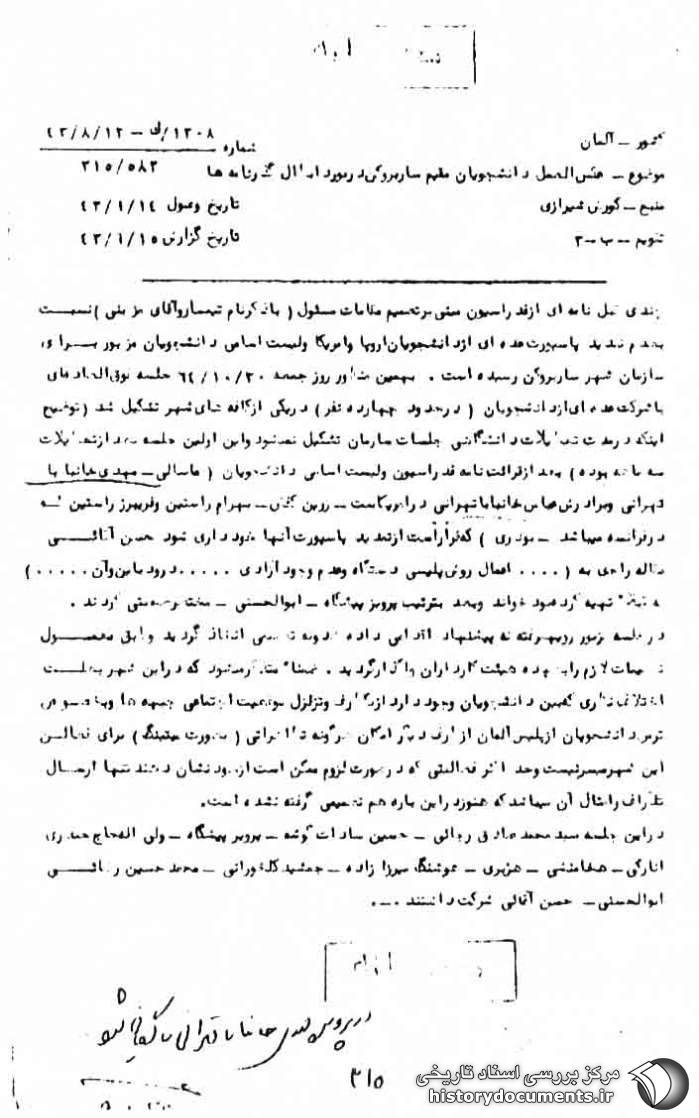 کشور ـ آلمان
شماره ۱۲۰۸/ک ـ ۴۳/۸/۱۲
موضوع ـ عکس‌العمل دانشجویان مقیم ساربروکن در مورد ابطال گذرنامه ها
۳۱۵/۵۸۲
منبع ـ کورش شیرازی
تاریخ وصول ۴۳/۱/۱۴
تقویم ـ ب ـ ۳
تاریخ گزارش ۴۳/۱/۱۵
چندی قبل نامه ای از فدراسیون مبنی بر تصمیم مقامات مسئول ( با ذکر نام تیمسار و آقای ) نسبت
بعدم تمدید پاسپورت عده ای از دانشجویان اروپا و امریکا و لیست اسامی دانشجویان مزبور برای
سازمان شهر ساربروکن رسیده است . بهمین منظور روز جمعه جلسه فوق‌العاده‌ای
با شرکت عده‌ای از دانشجویان ( در حدود چهارده نفر ) در یکی از کافه های شهر تشکیل شد ( توضیح
اینکه در مدت تعطیلات دانشگاهی جلسات سازمان تشکیل نمیشود و این اولین جلسه بعد از تعطیلات
سه ماهه بوده ) بعد از قرائت نامه فدراسیون و لیست اسامی دانشجویان ( ماسالی ـ مهدی خانبابا
تهرانی و برادرش عباس خانبابا تهرانی در امریکاست ـ روبن ـ بهرام راستین و فریبرز راستین که
در فرانسه میباشد ـ ) که قرار است از تمدید پاسپورت آنها خودداری شود حسن آقائی
مقاله راجع به ( .... اعمال روش پلیسی دستگاه و عدم وجود آزادی ..... )
تهیه کرده بود خواند و بعد بترتیب پرویز پیشگاه ـ ابوالحسنی ـ مختصر صحبتی کردند .
در جلسه مزبور رویهمرفته نه پیشنهاد داده شد و نه تصمیمی اتخاذ گردید و طبق معمول
تصمیمات لازم را بعهده هیئت کارداران واگذار گردید . ضمناً متذکر میشود که در این شهر بعلت
اختلاف نظری که بین دانشجویان وجود دارد از یکطرف و تزلزل موقعیت اجتماعی جبهه ها و بخصوص
ترس دانشجویان از پلیس آلمان از طرف دیگر امکان هرگونه تظاهراتی ( بصورت میتینگ ) برای فعالین
این شهر میسر نیست و حداکثر فعالیتی که در صورت لزوم ممکن است از خود نشان دهند تنها ارسال
تلگراف و امثال آن میباشد که هنوز در این باره هم تصمیمی گرفته نشده است.
در این جلسه سید محمد صادق رجائی ـ حسین سادات گوشه ـ پرویز پیشگاه ـ ولی الحاج حیدری
انارکی ـ هخامنشی ـ هژبری ـ هوشنگ میرزا زاده ـ جمشید ـ محمد حسین
ابوالحسنی ـ حسن آقائی شرکت داشتند .
در پرونده مهدی خانبابا تهرانی بایگانی شود
۳۱۵
مرکز بررسی اسناد تاریخی
historydocuments.ir